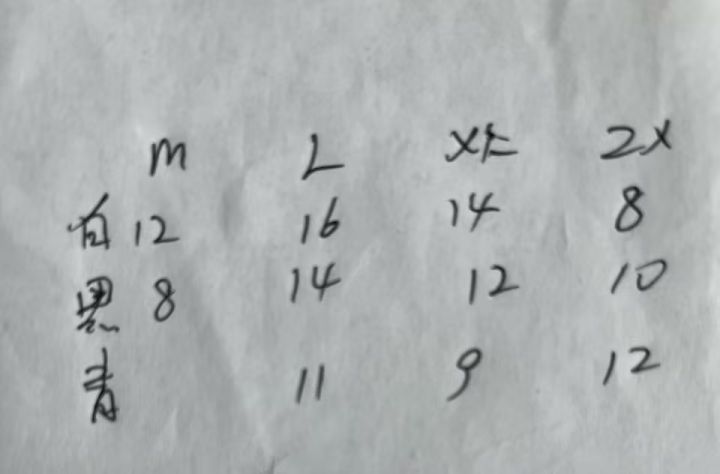 M L XL 2X
白 12 16 14 8
黑 8 14 12 10
青 11 9 12